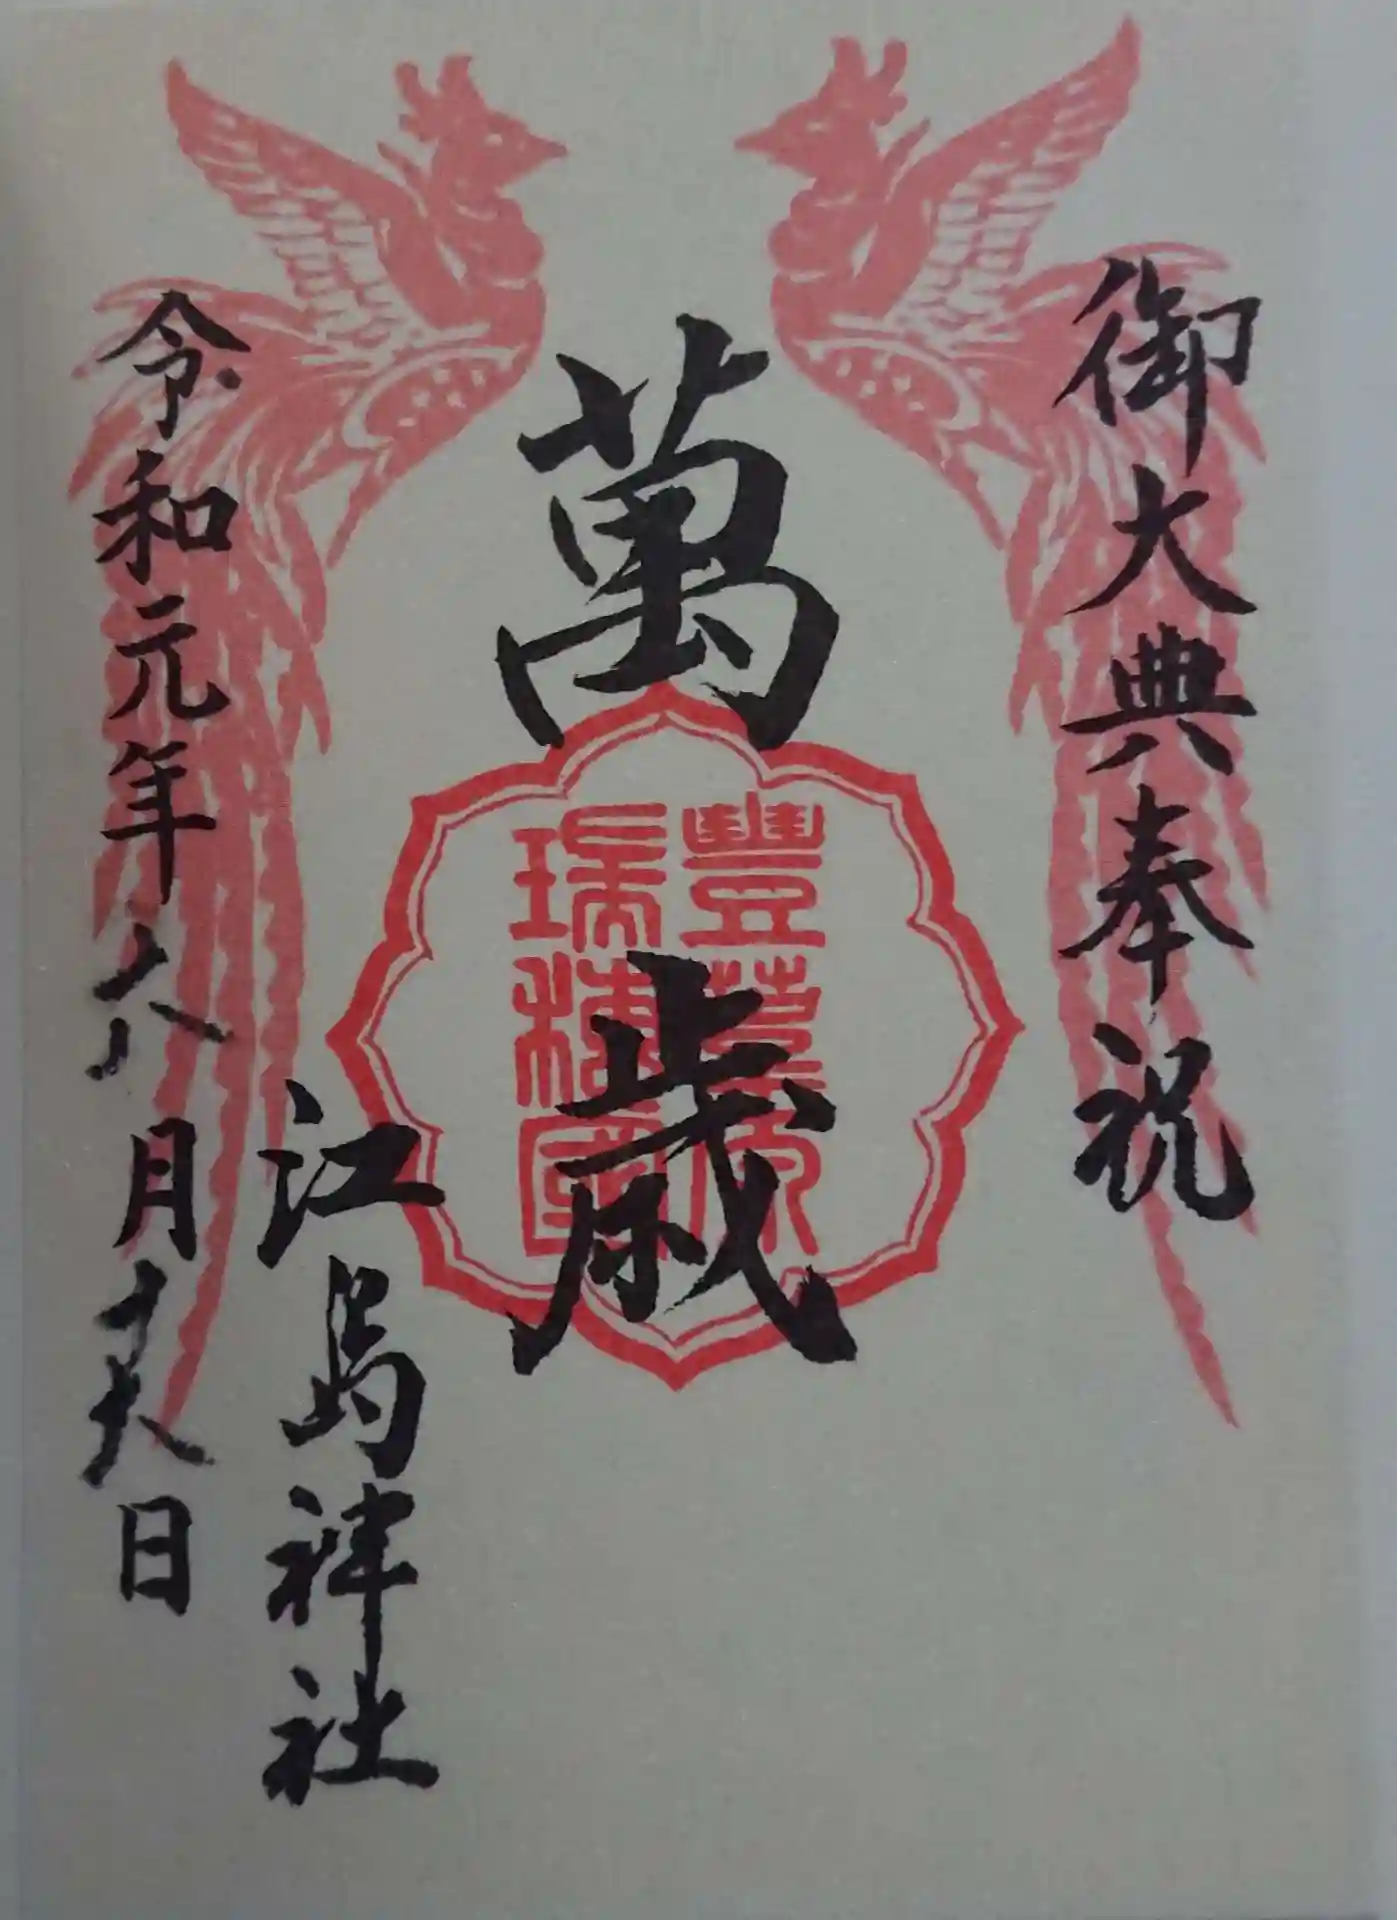 御大典奉祝
萬歳
豐葦原
瑞穂國
江島神社
令和元年六月十六日